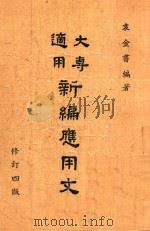 袁金書編著
大專適用
新編應用文
修訂四版